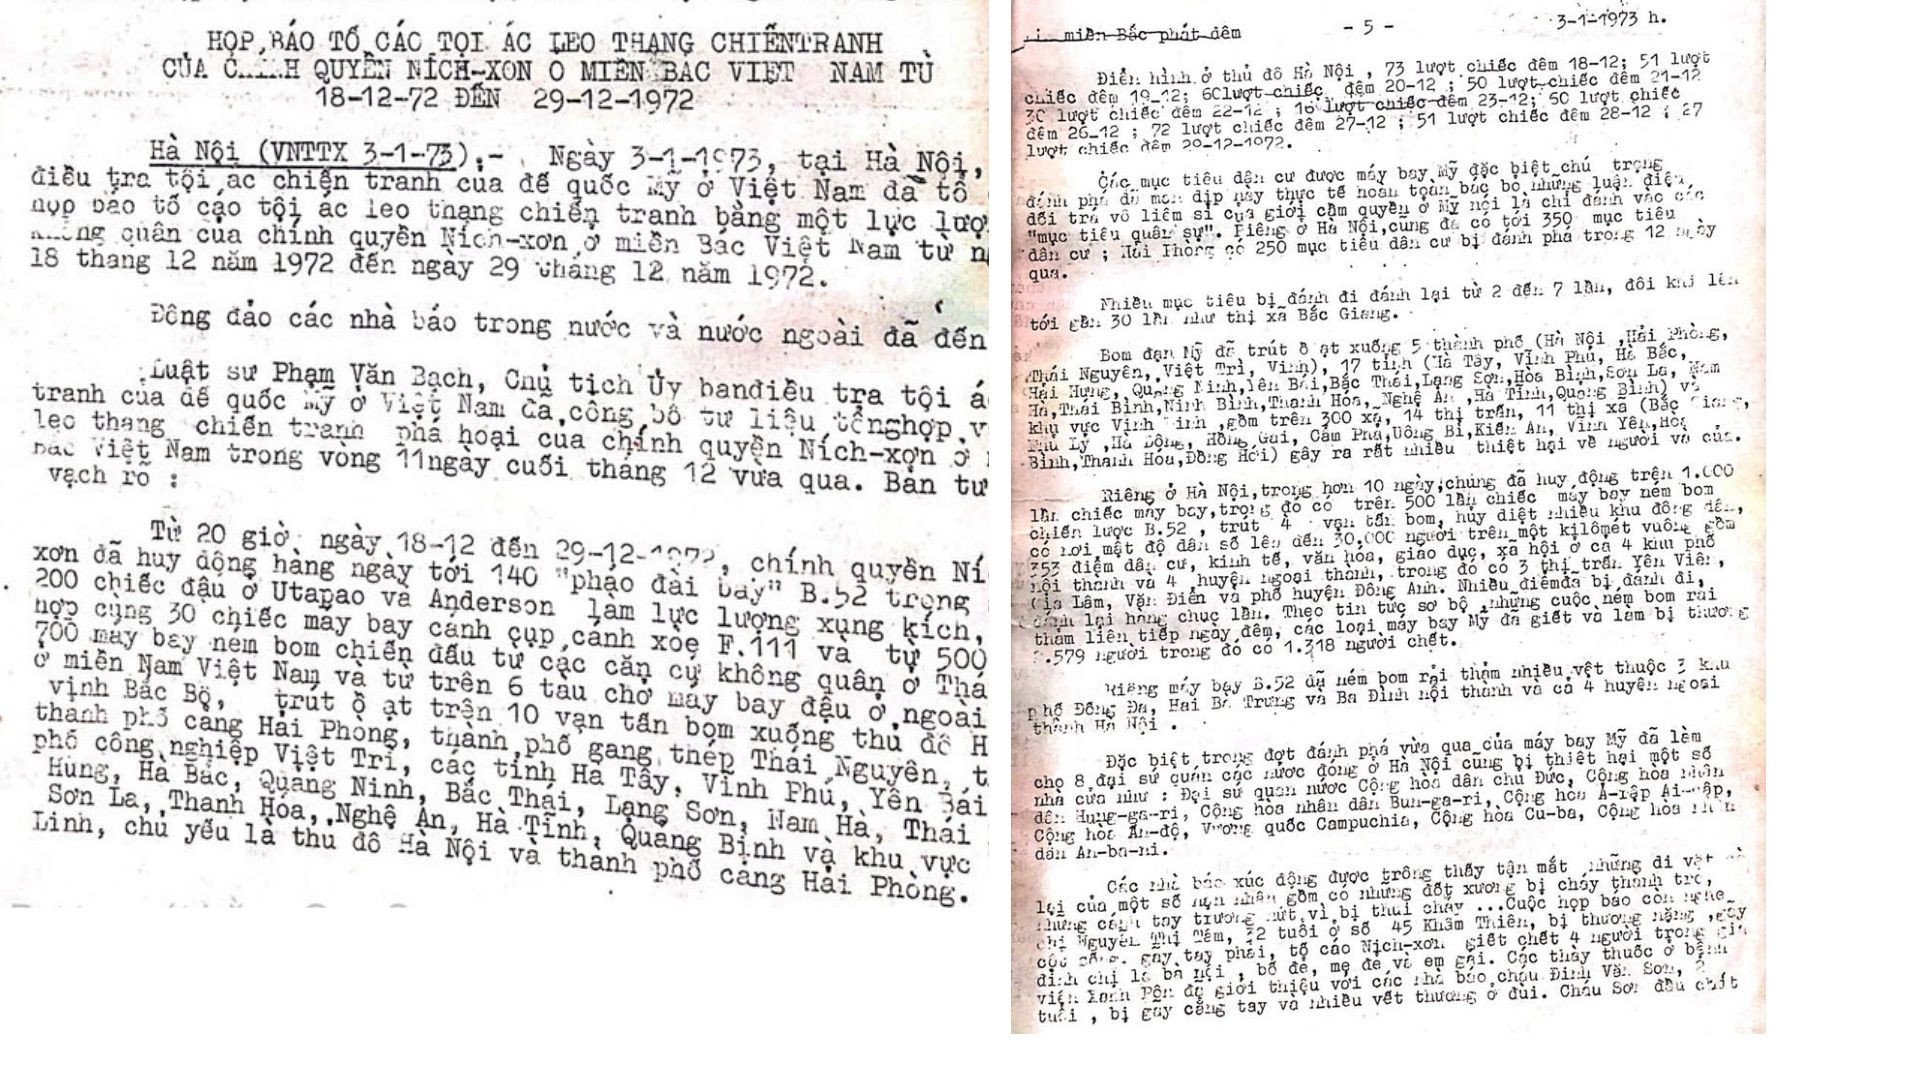 HỌP BÁO TỐ CÁO TỘI ÁC LEO THANG CHIẾNTRANH
CỦA QUYỀN NÍCH-XƠN Ở MIỀN BẮC VIỆT NAM TỪ
18-12-72 ĐẾN 29-12-1972
Hà Nội (VNTTX 3-1-73).- Ngày 3-1-1973, tại Hà Nội,
điều tra tội ác chiến tranh của đế quốc Mỹ ở Việt Nam đã tổ
họp báo tố cáo tội ác leo thang chiến tranh bằng một lực
không quân của chính quyền Ních-xơn ở miền Bắc Việt Nam từ
18 tháng 12 năm 1972 đến ngày 29 tháng 12 năm 1972.
Đông đảo các nhà báo trong nước và nước ngoài đã đến
Luật sư Phạm Văn Bạch, Chủ tịch Ủy banđiều tra tội
tranh của đế quốc Mỹ ở Việt Nam đã công bố tư liệu tổnghợp
leo thang chiến tranh phá hoại của chính quyền Ních-xơn ở
Bắc Việt Nam trong vòng 11ngày cuối tháng 12 vừa qua. Bản tư
vạch rõ :
Từ 20 giờ ngày 18-12 đến 29-12-1972, chính quyền
xơn đã huy động hàng ngày tới 140 "pháo đài bay" B.52 trong
200 chiếc đậu ở Utapao và Anderson làm lực lượng xung kích,
hợp cùng 30 chiếc máy bay cánh cụp cánh xòe F.111 và từ 500
700 máy bay ném bom chiến đấu từ các căn cứ không quân ở
ở miền Nam Việt Nam và từ trên 6 tàu chở máy bay đậu ở ngoài
vịnh Bắc Bộ, trút ồ ạt trên 10 vạn tấn bom xuống thủ đô
thành phố cảng Hải Phòng, thành phố gang thép Thái Nguyên,
phố công nghiệp Việt Trì, các tỉnh Hà Tây, Vĩnh Phú, Yên Bái
Hưng, Hà Bắc, Quảng Ninh, Bắc Thái, Lạng Sơn, Nam Hà, Thái
Sơn La, Thanh Hóa, Nghệ An, Hà Tĩnh, Quảng Bình và khu vực
Linh, chủ yếu là thủ đô Hà Nội và thành phố cảng Hải Phòng.
miền Bắc phát đêm - 5 - 3-1-1973 h.
Điển hình ở thủ đô Hà Nội , 73 lượt chiếc đêm 18-12; 51 lượt
chiếc đêm 19-12; 60lượt chiếc đêm 20-12 ; 50 lượt chiếc đêm 21-12
30 lượt chiếc đêm 22-12 ; lượt chiếc đêm 23-12; 50 lượt chiếc
đêm 26-12 ; 72 lượt chiếc đêm 27-12 ; 51 lượt chiếc đêm 28-12 ; 27
lượt chiếc đêm 29-12-1972.
Các mục tiêu dân cư được máy bay Mỹ đặc biệt chú trọng
đánh phá dã man dịp này thực tế hoàn toàn bác bỏ những luận điệu
dối trá vô liêm sỉ của giới cầm quyền ở Mỹ nói là chỉ đánh vào các
"mục tiêu quân sự". Riêng ở Hà Nội,cũng đã có tới 350 mục tiêu
dân cư ; Hải Phòng có 250 mục tiêu dân cư bị đánh phá trong 12 ngày
qua.
Nhiều mục tiêu bị đánh đi đánh lại từ 2 đến 7 lần, đôi khi lên
tới gần 30 lần như thị xã Bắc Giang.
Bom đạn Mỹ đã trút ồ ạt xuống 5 thành phố (Hà Nội ,Hải Phòng,
Thái Nguyên, Việt Trì, Vinh), 17 tỉnh (Hà Tây, Vĩnh Phú, Hà Bắc,
Hải Hưng, Quảng Ninh,Yên Bái,Bắc Thái,Lạng Sơn,Hòa Bình,Sơn La, Nam
Hà,Thái Bình,Ninh Bình,Thanh Hóa, Nghệ An ,Hà Tĩnh,Quảng Bình) và
khu vực Vĩnh Linh ,gồm trên 300 xã, 14 thị trấn, 11 thị xã (Bắc Giang,
Phủ Lý ,Hà Đông, Hồng Gai, Cẩm Phả,Uông Bí,Kiến An, Vĩnh Yên,Hòa
Bình,Thanh Hóa,Đồng Hới) gây ra rất nhiều thiệt hại về người và của.
Riêng ở Hà Nội,trong hơn 10 ngày,chúng đã huy động trên 1.000
lần chiếc máy bay,trong đó có trên 500 lần chiếc máy bay ném bom
chiến lược B.52 , trút 4 vạn tấn bom, hủy diệt nhiều khu đông dân,
có nơi mật độ dân số lên đến 30.000 người trên một kilômét vuông gồm
353 điểm dân cư, kinh tế, văn hóa, giáo dục, xã hội ở cả 4 khu phố
nội thành và 4 huyện ngoại thành, trong đó có 3 thị trấn Yên Viên,
Gia Lâm, Văn Điển và phố huyện Đông Anh. Nhiều điểmđã bị đánh đi,
đánh lại hàng chục lần. Theo tin tức sơ bộ ,những cuộc ném bom rải
thảm liên tiếp ngày đêm, các loại máy bay Mỹ đã giết và làm bị thương
.579 người trong đó có 1.318 người chết.
Riêng máy bay B.52 đã ném bom rải thảm nhiều vệt thuộc 3 khu
phố Đống Đa, Hai Bà Trưng và Ba Đình nội thành và cả 4 huyện ngoại
thành Hà Nội .
Đặc biệt trong đợt đánh phá vừa qua của máy bay Mỹ đã làm
cho 8 đại sứ quán các nước đóng ở Hà Nội cũng bị thiệt hại một số
nhà cửa như : Đại sứ quán nước Cộng hòa dân chủ Đức, Cộng hòa nhân
dân Hung-ga-ri, Cộng hòa nhân dân Bun-ga-ri, Cộng hòa Ả-rập Ai-cập,
Cộng hòa Ấn-độ, Vương quốc Campuchia, Cộng hòa Cu-ba, Cộng hòa nhân
dân An-ba-ni.
Các nhà báo xúc động được trông thấy tận mắt những di vật
lại của một số nạn nhân gồm có những đốt xương bị cháy thành tro,
những cánh tay trương nứt vì bị thui cháy ...Cuộc họp báo còn nghe
chị Nguyễn Thị Tám, 22 tuổi ở số 45 Khâm Thiên, bị thương nặng ,gãy
gãy tay phải, tố cáo Ních-xơn giết chết 4 người trong gia
đình chị là bà nội , bố đẻ, mẹ đẻ và em gái. Các thầy thuốc ở bệnh
viện Xanh Pôn đã giới thiệu với các nhà báo cháu Đinh Văn Sơn, 2
tuổi , bị gãy cẳng tay và nhiều vết thương ở đùi. Cháu Sơn đều chết